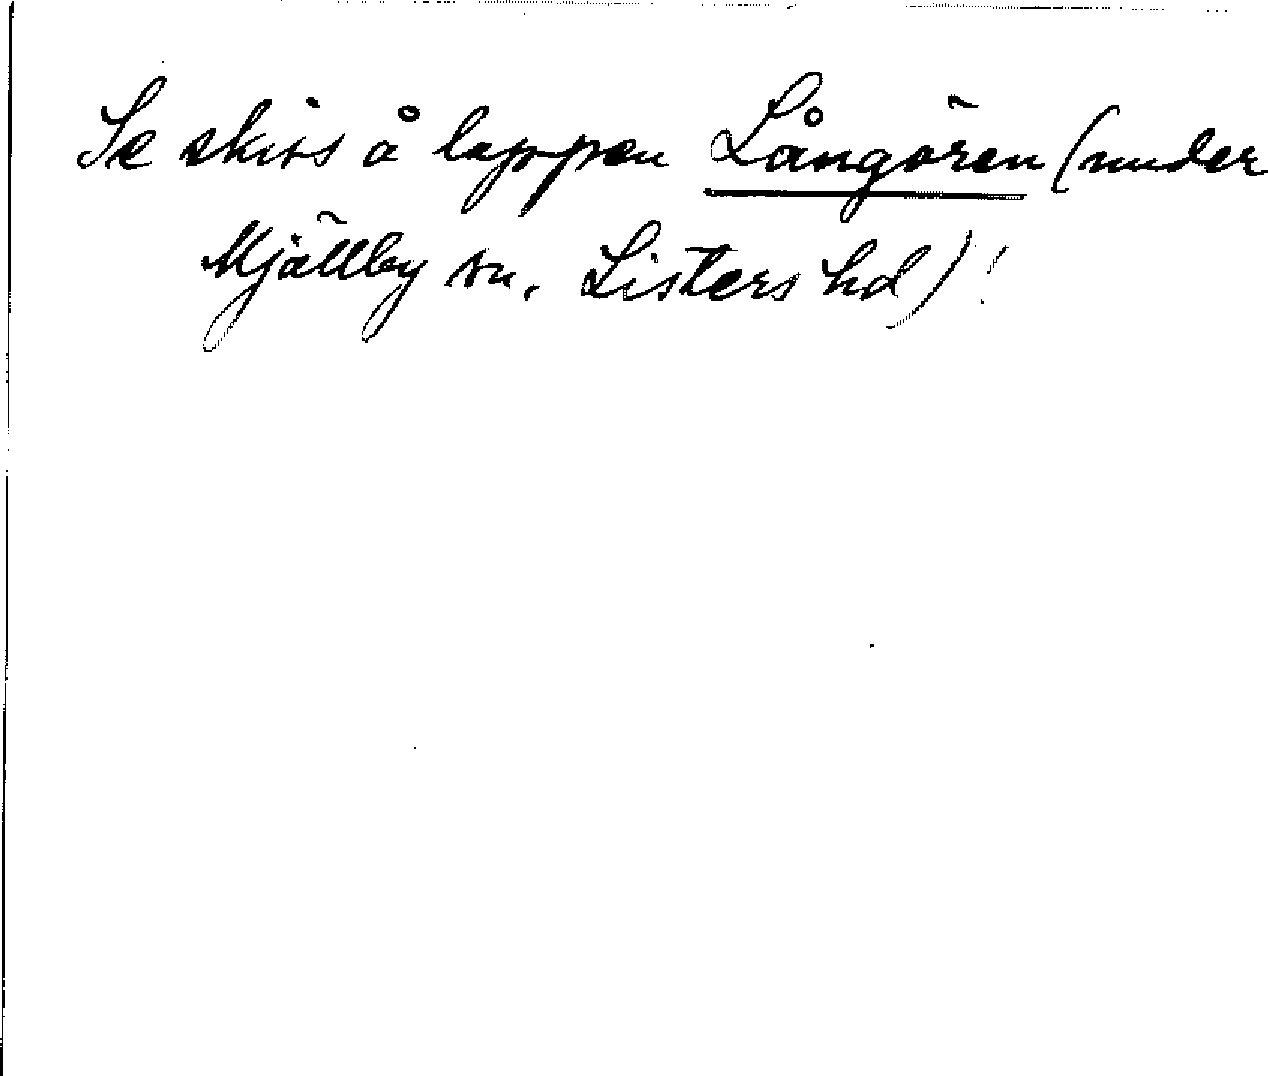 Se skiss å lappen Långören (under
Mjällby sn, Listers hd)!